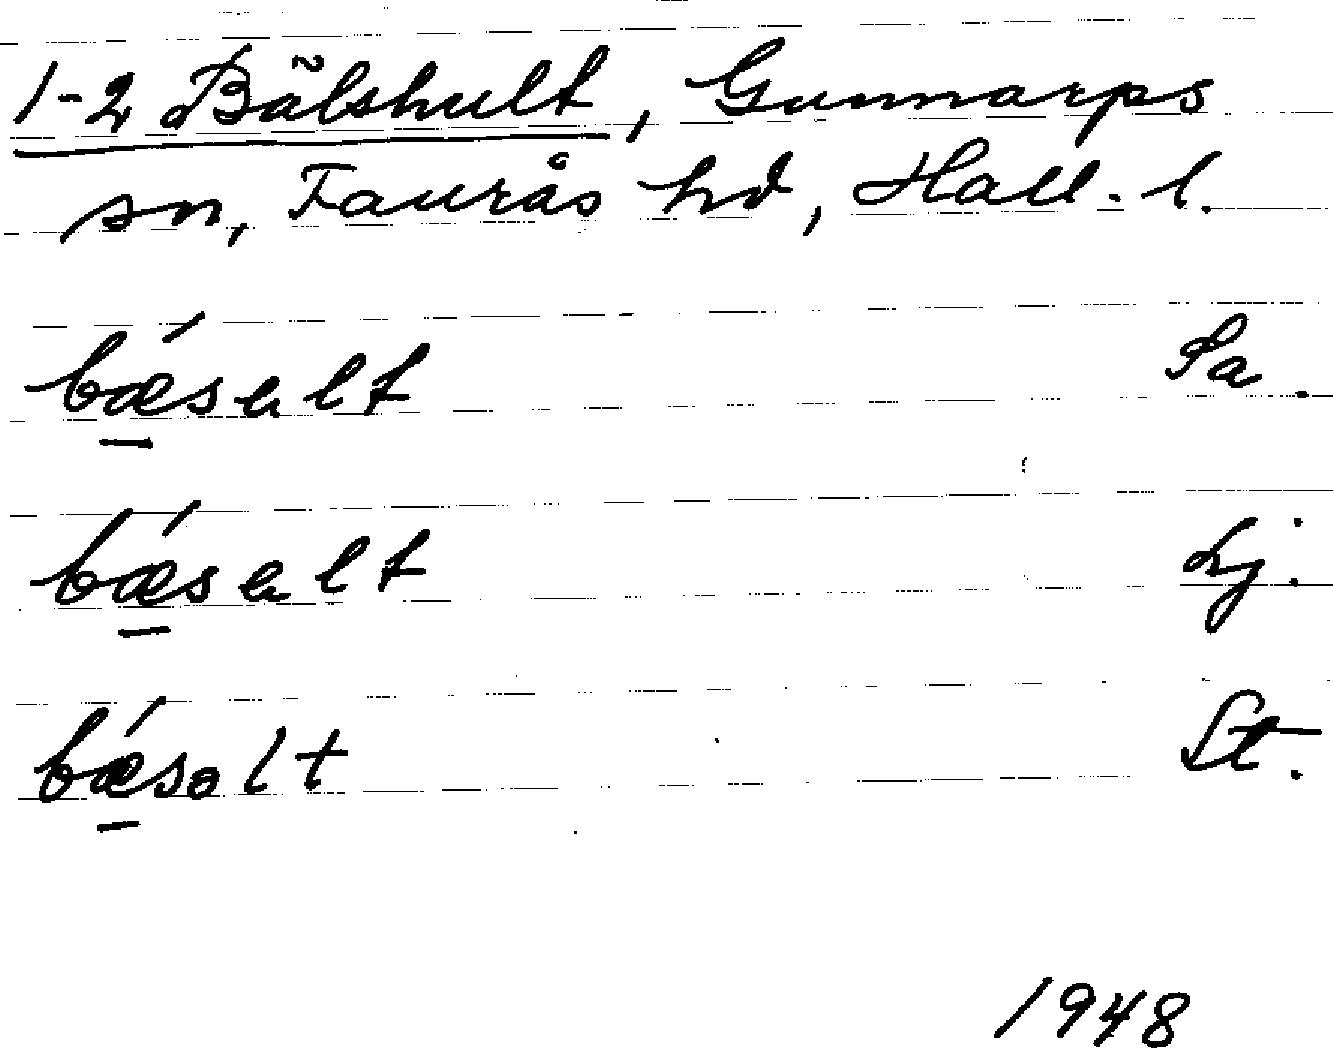 1-2 Bälshult, Gunnarps
sn, Faurås hd, Hall. l.
bǽ̲salt Sa.
bǽ̲salt Lj.
bǽ̲solt St.
1948